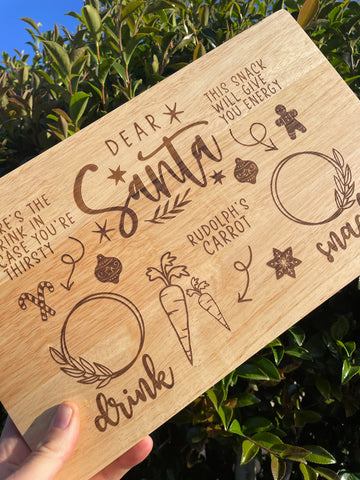 DEAR
Santa
THIS SNACK
WILL GIVE
YOU ENERGY
THE
IN
CASE YOU'RE
THIRSTY
RUDOLPH'S
CARROT
drink